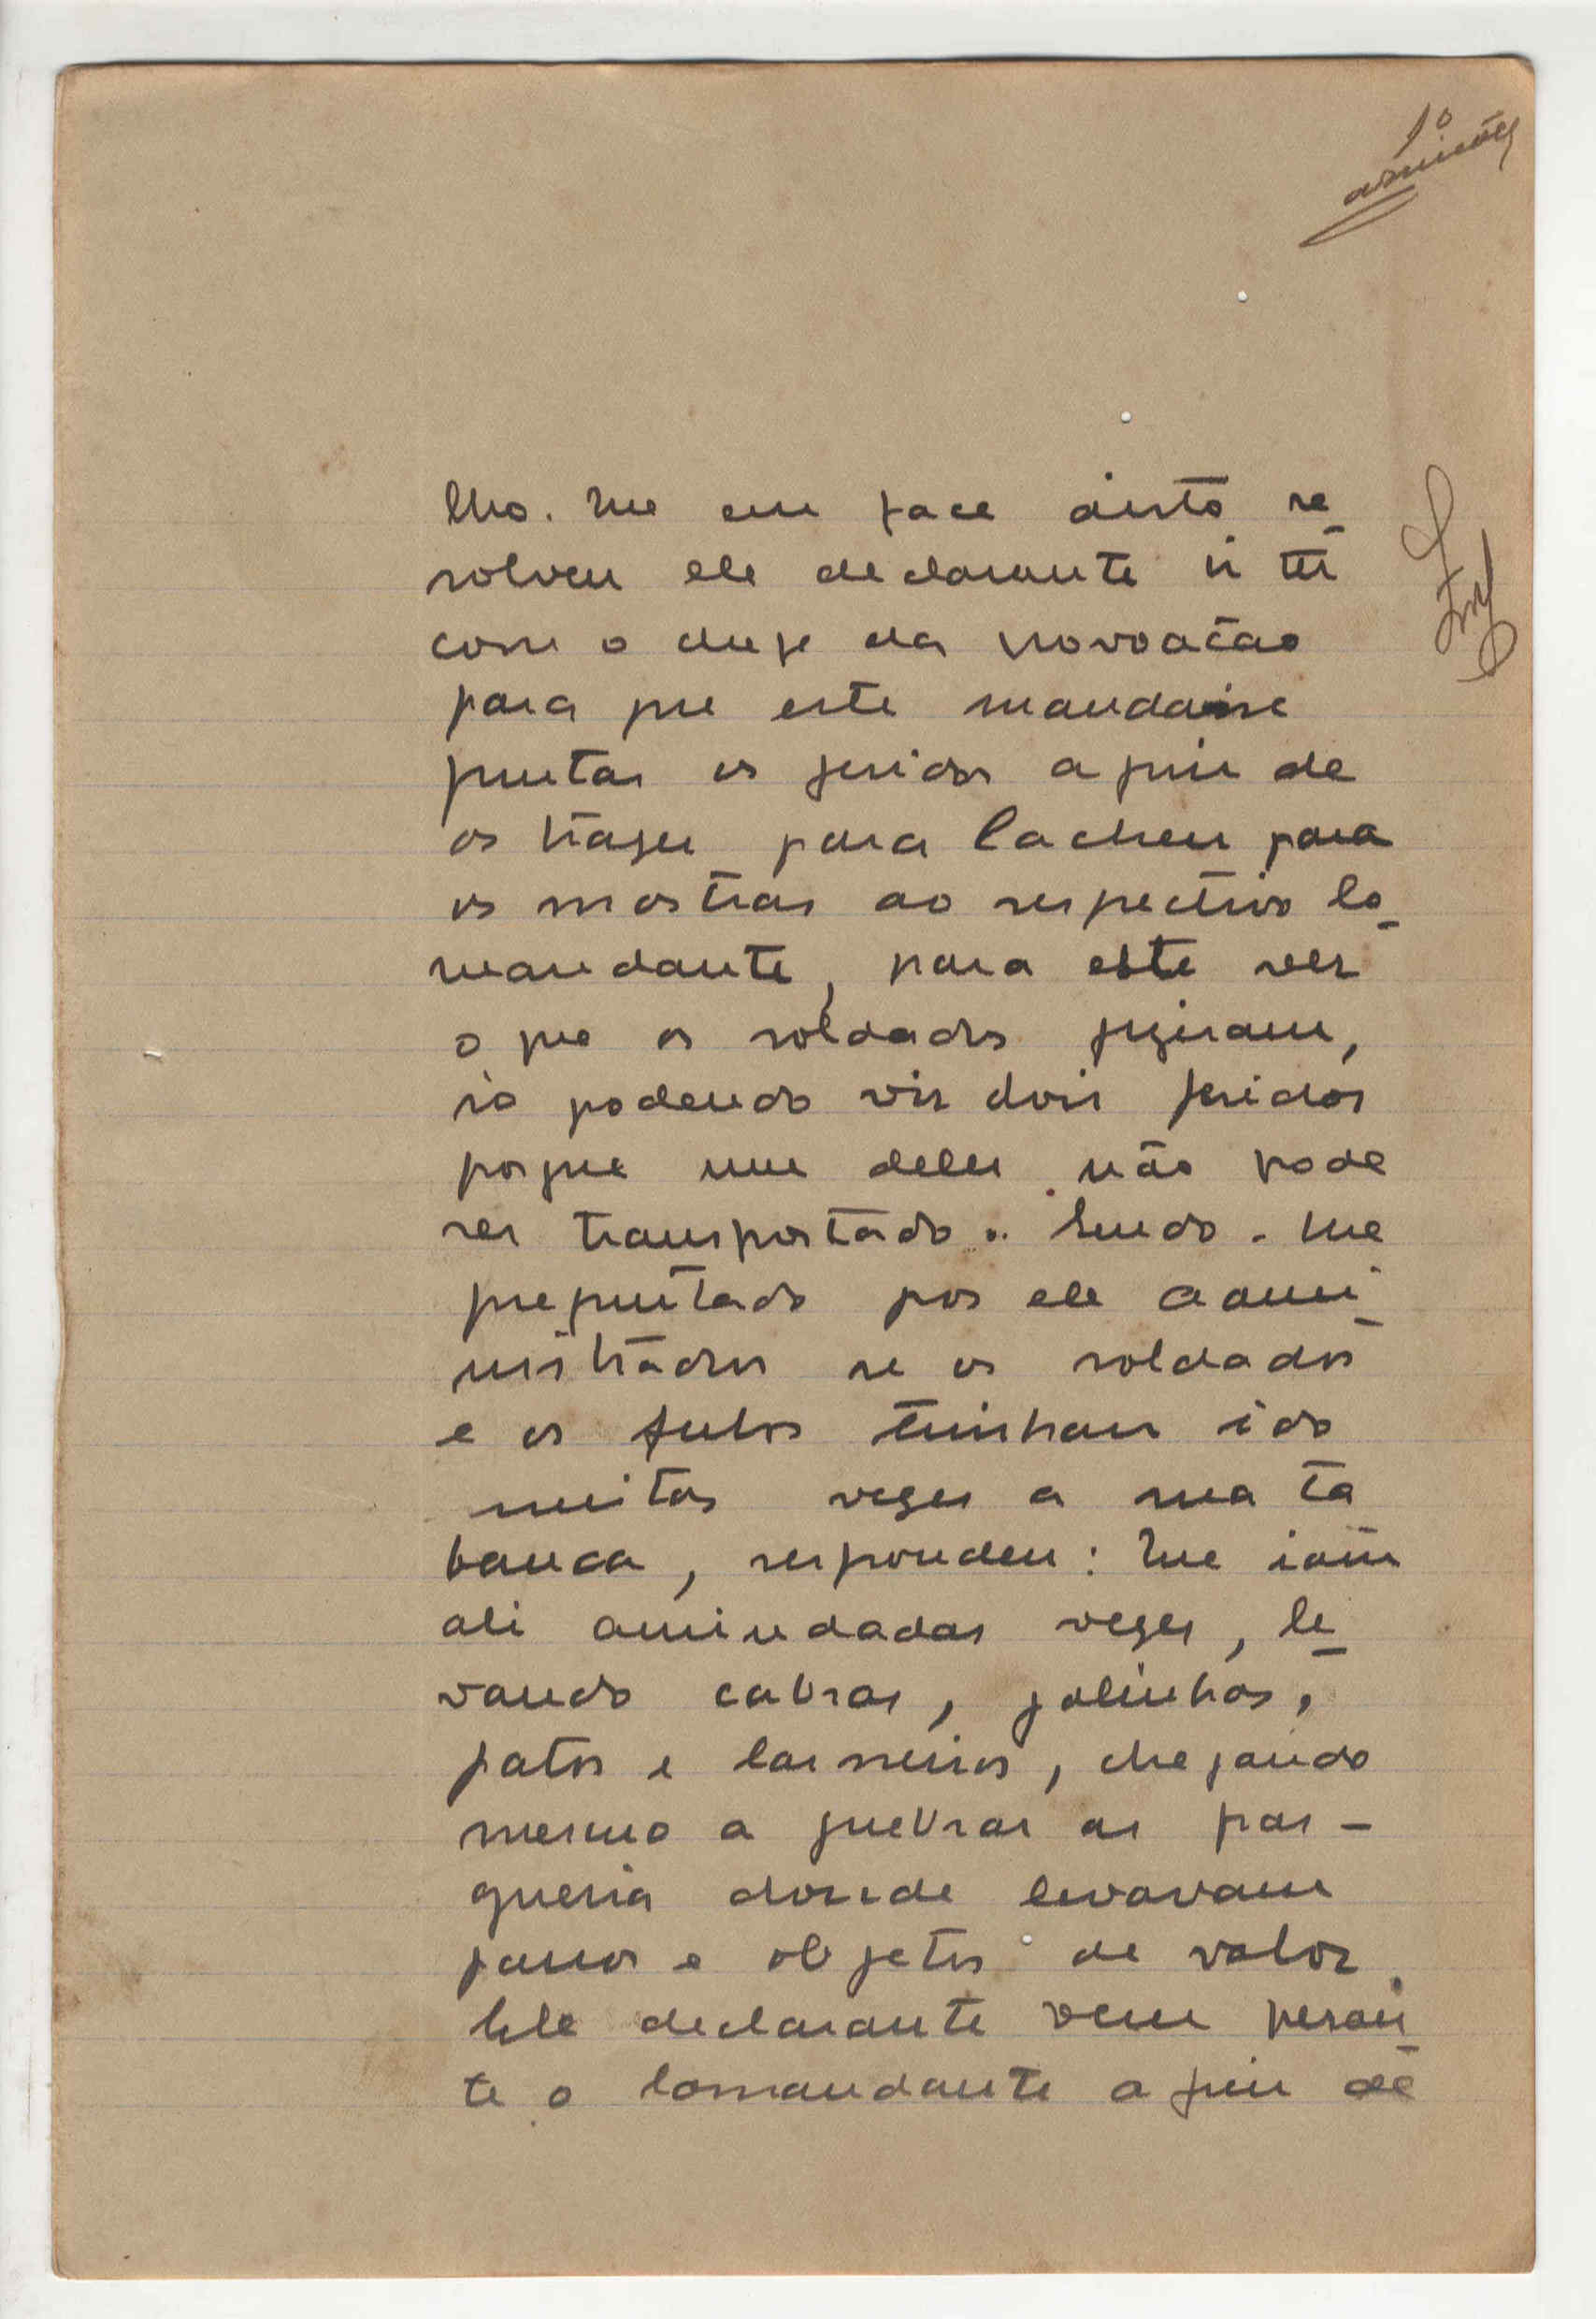 lho. Que em face disto re-
solveu ele declarante ir ter
com o chefe da povoação
para que este mandasse
juntar os feridos a fim de
os trazer para Cacheu para
os mostrar ao respectivo Co-
mandante, para este ver
o que os soldados fizeram,
só podendo vir dois feridos
porque um deles não pode
ser transportado. Sendo-lhe
preguntado por ele admi-
nistrador se os soldados
e os fulas tinham ido
muitas vezes a sua ta
banca, respondeu: Que iam
ali amiudadas vezes, le-
vando cabras, galinhas,
patos e carneiros, chegando
mesmo a quebrar as por-
donde levavam
panos e objetos de valor.
Ele declarante vem peran-
te o Comandante a fim de